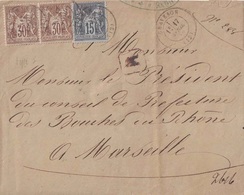 30 30 15
R
A Monsieur
Monsieur le Président
du conseil de Préfecture
des Bouches du Rhône
à Marseille
2646